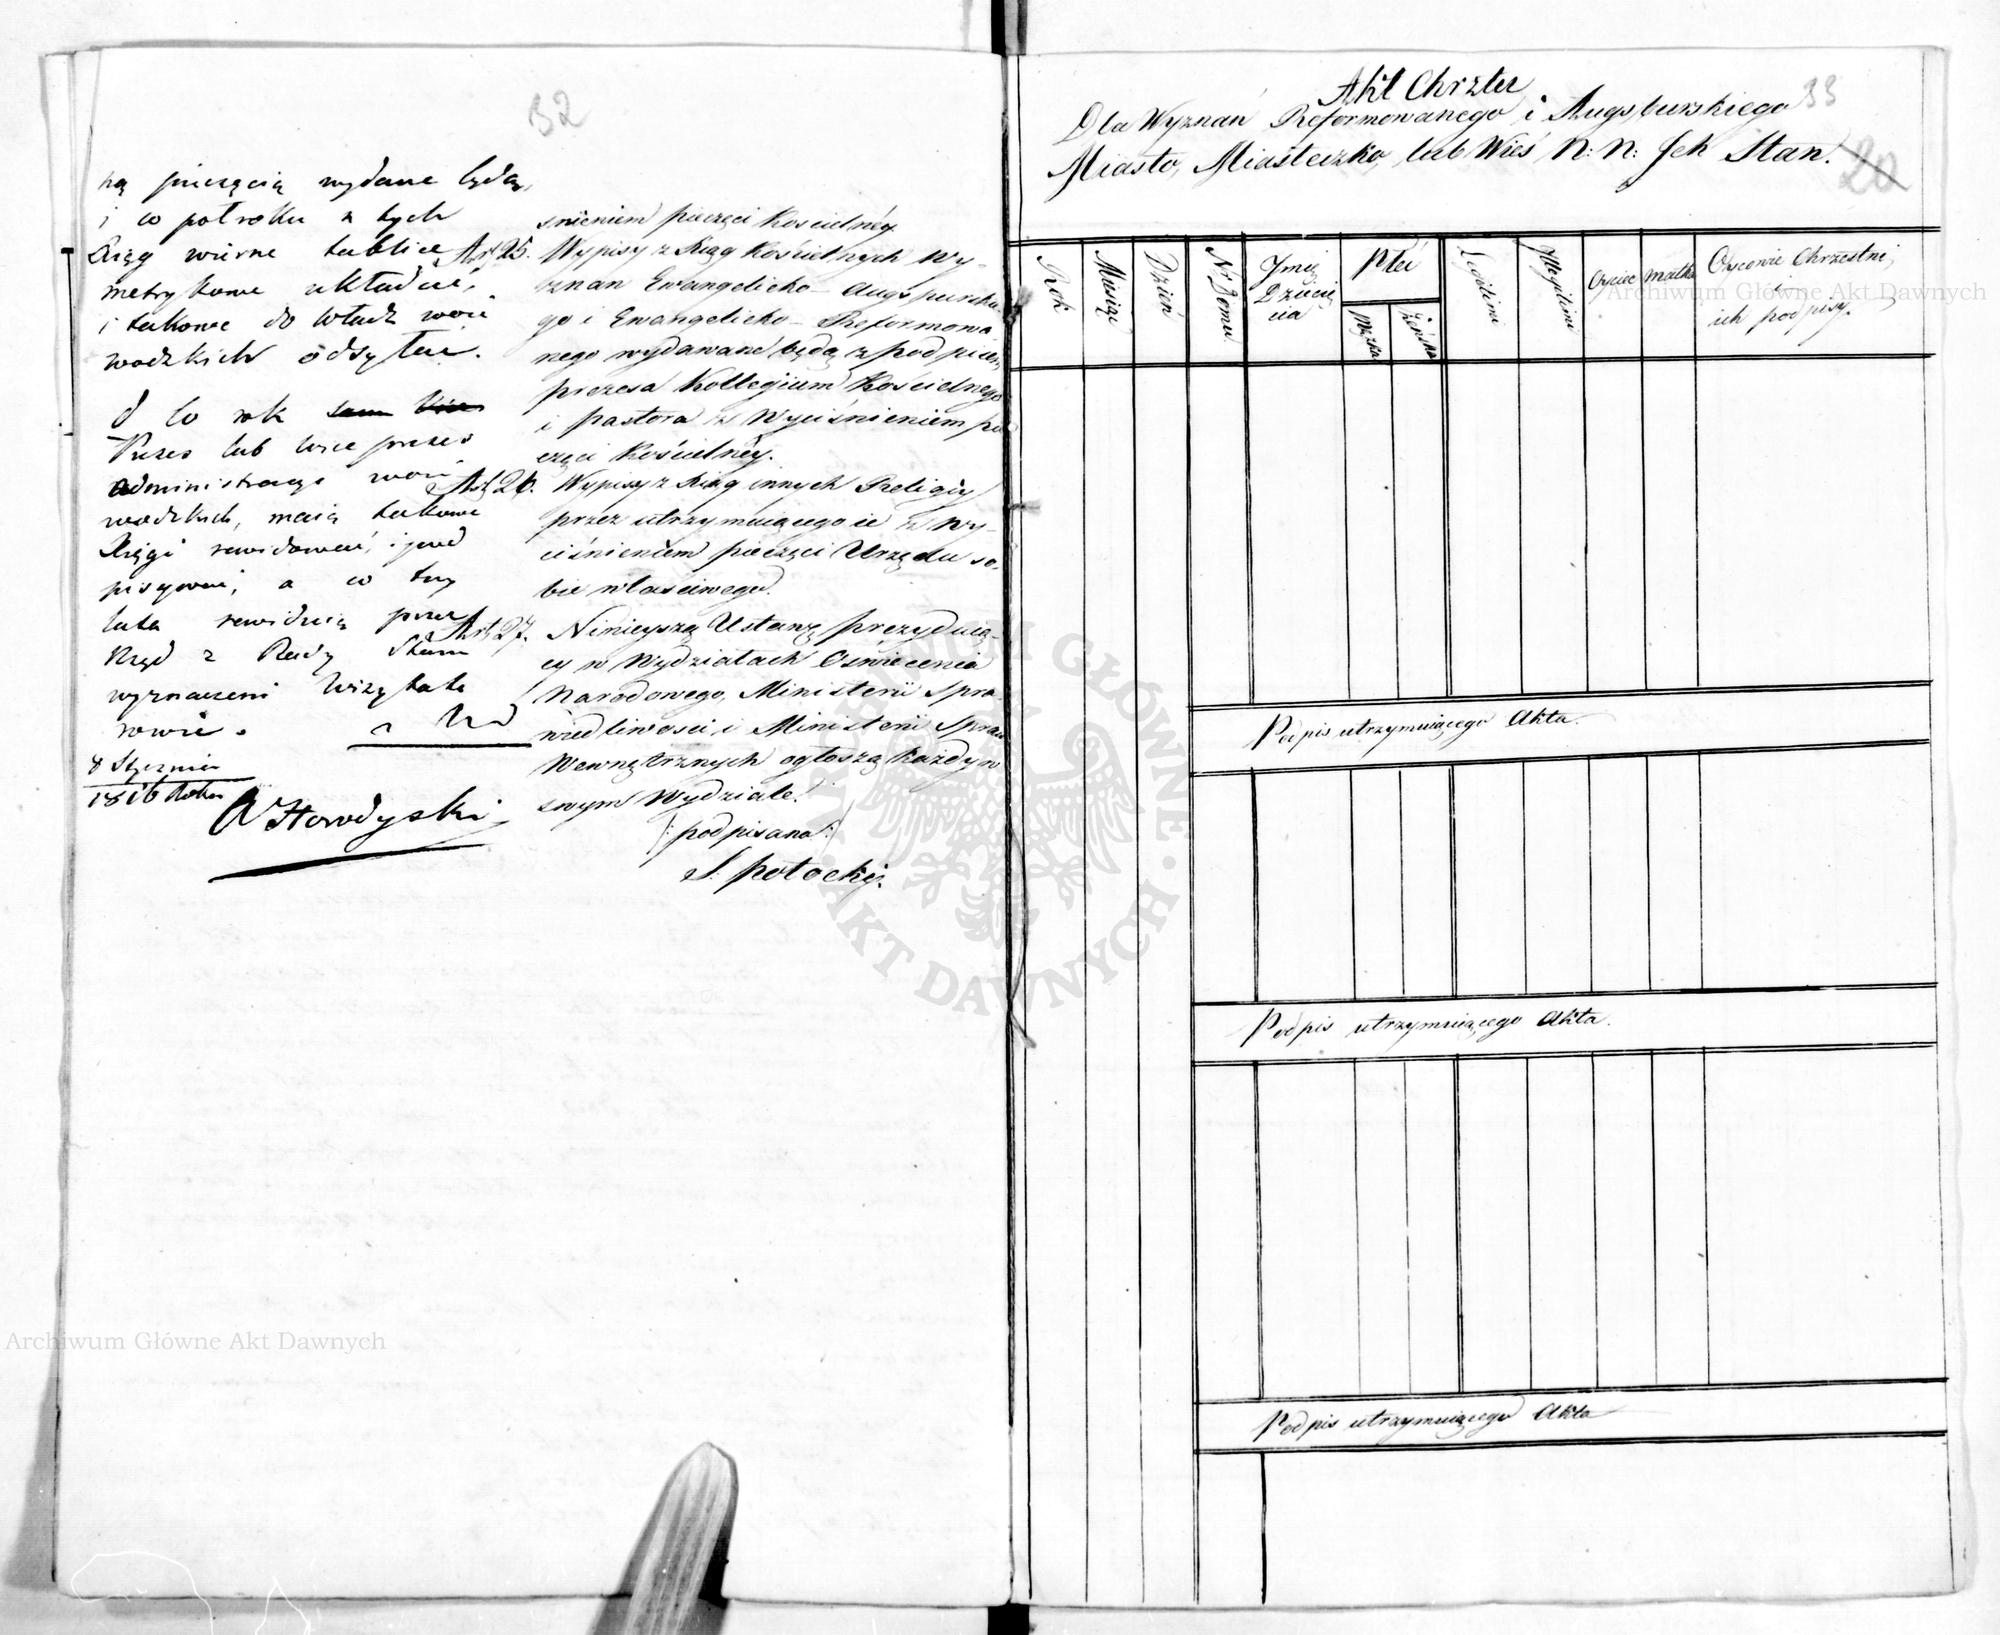 32
ną pieczęcią wydane będą,
i co pół roku z tych
Xiąg wierne tablice
metrykowe układać,
i takowe do Władz woie
wodzkich odsyłać.
Co rok
Prezes lub wice prezes
administracyi woie
wodzkich, maią takowe
Xięgi rewidować, i pod
pisywać, a co trzy
lata rewiduią przez
Rząd z Rady Stanu
wyznaczeni Wizytato
rowie.
8 Stycznia
1816 Roku
A Horodyski
śnieniem pieczęci Kościelnéy.
Art. 25. Wypisy z Xiąg Kościelnych Wy-
znań Ewangelicko-Augspurskie-
go i Ewangelicko-Reformowa
nego wydawane będą z podpisem
prezesa Kollegium Kościelnego
i pastora z Wyciśnieniem pie
częci Kościelnéy.
Art. 26. Wypisy z Xiąg innych Religiy
przez utrzymuiącego ie z wy-
ciśnieniem pieczęci Urzędu so-
bie właściwego.
Art. 27. Ninieyszą Ustawę prezyduią-
cy w Wydziałach Oświecenia
Narodowego, Ministerii Spra-
wiedliwości i Ministerii Spraw
Wewnętrznych ogłoszą każdy w
swym Wydziale.
(: podpisano :)
S. Potocki.
Akt Chrztu
33
Dla Wyznań Reformowanego i Augsburskiego
Miasto, Miasteczko, lub Wieś N: N: Jch Stan.
20
Rok
Miesiąc
Dzień
Nr Domu
Jmię
Dziecię
cia
Płeć
Męzka
Żeńska
Legitimi
Jllegitimi
Oyciec
Matka
Oycowie Chrzestni,
i
ich podpisy.
Podpis utrzymuiącego Akta.
Podpis utrzymuiącego Akta.
Podpis utrzymuiącego Akta
Archiwum Główne Akt Dawnych
Archiwum Główne Akt Dawnych
ARCHIWUM GŁÓWNE
AKT DAWNYCH